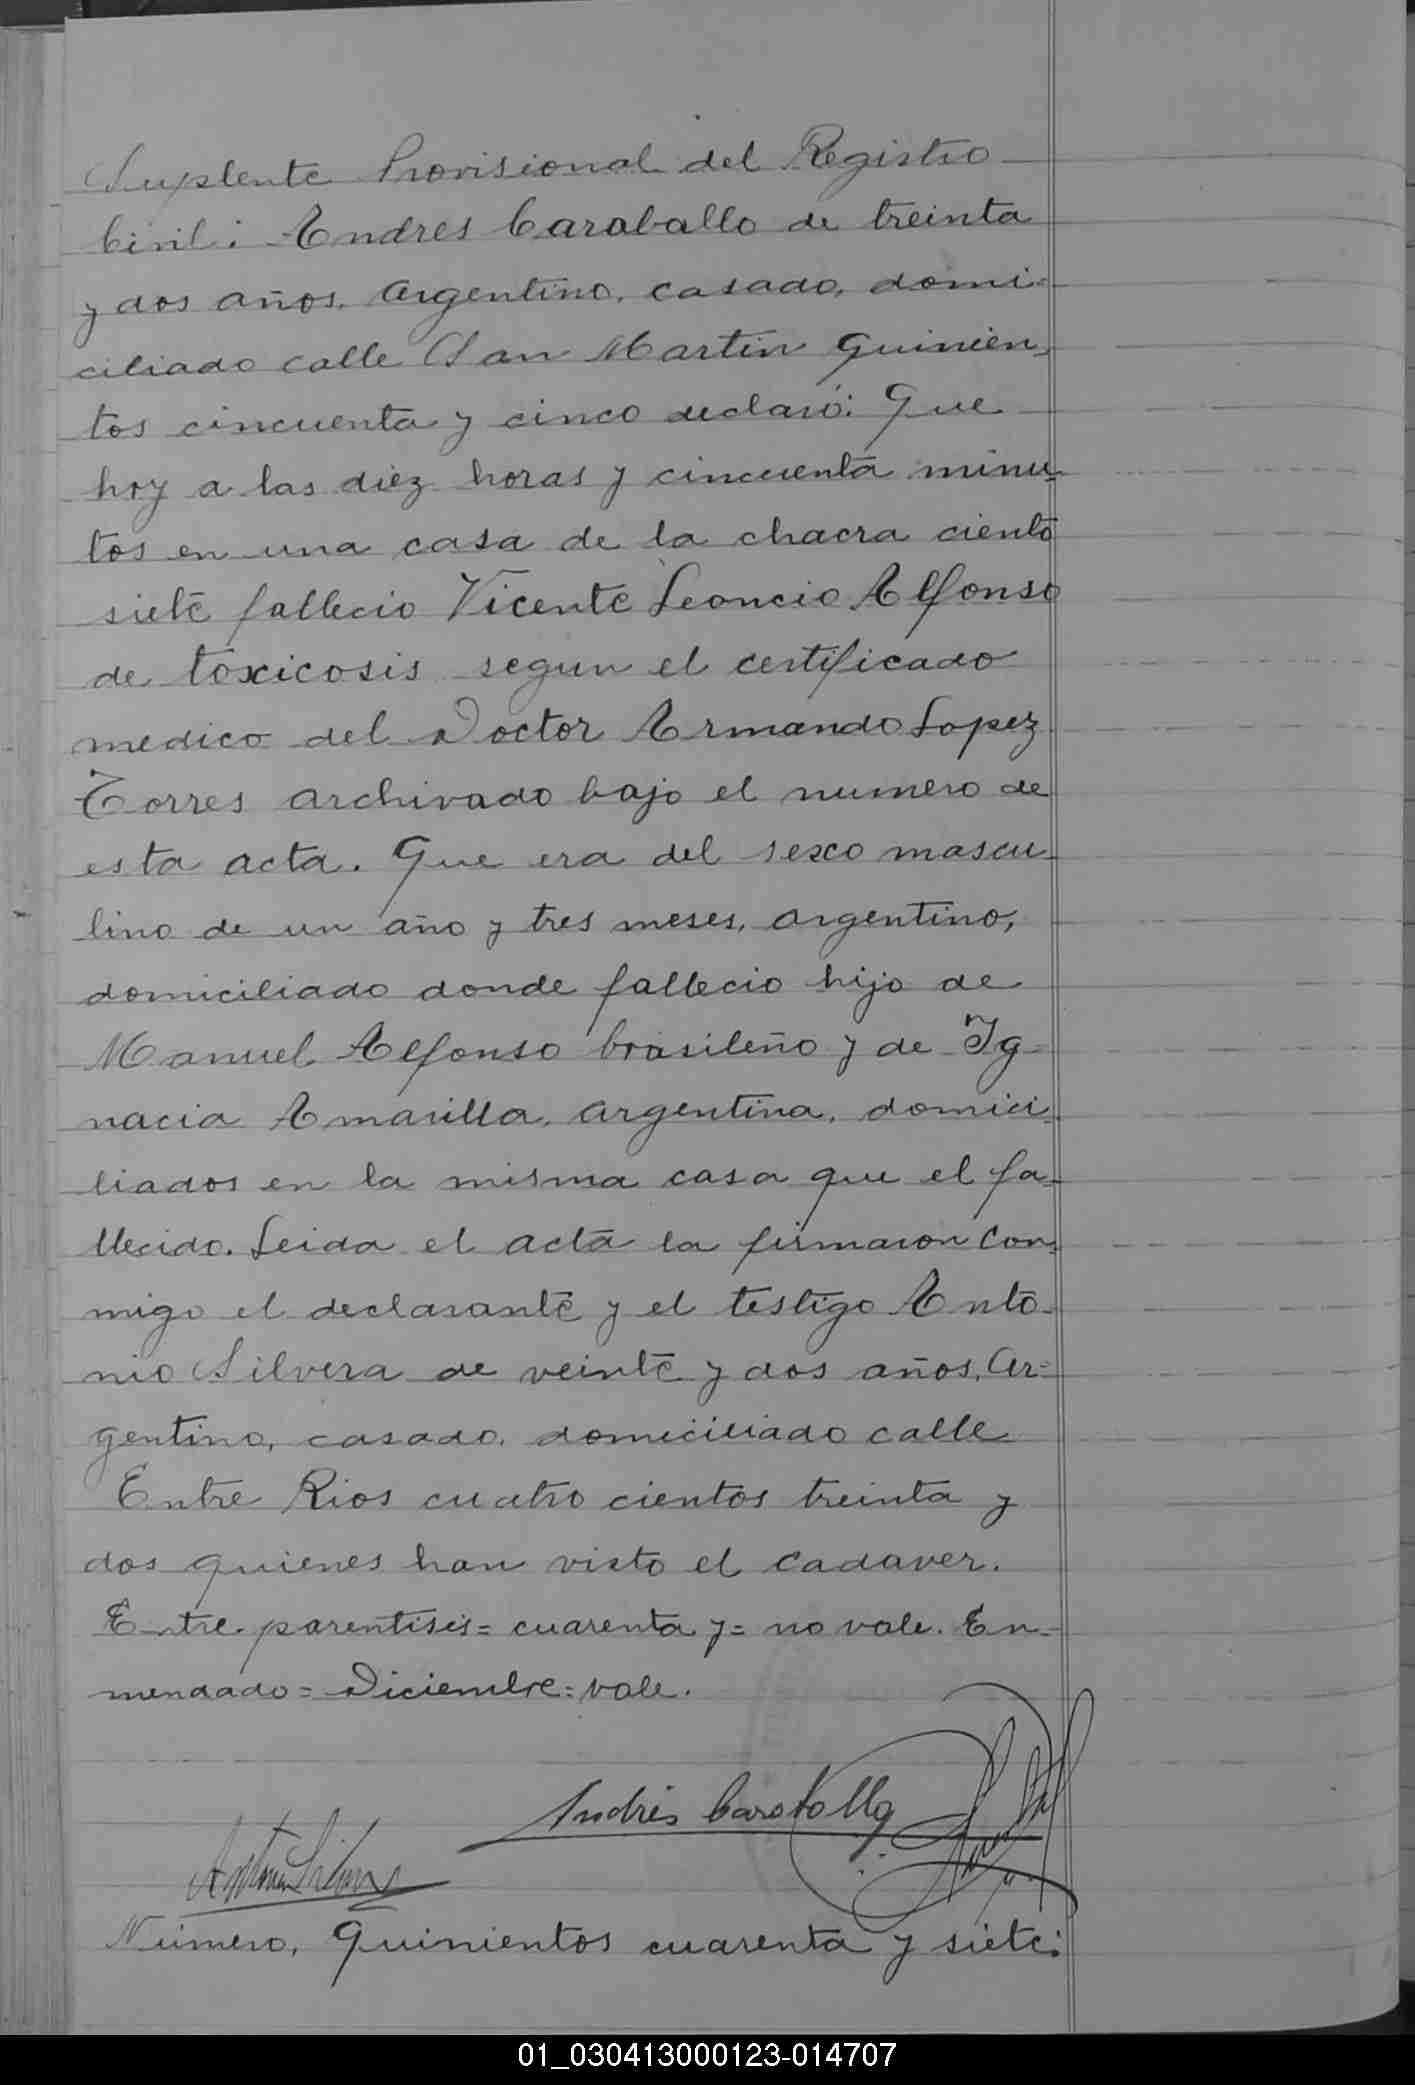 Suplente Provisional del Registro
Civil: Andres Caraballo de treinta
y dos años, argentino, casado, domi-
ciliado calle San Martin quinien-
tos cincuenta y cinco declaró: Que
hoy a las diez horas y cincuenta minu-
tos en una casa de la chacra ciento
siete fallecio Vicente Leoncio Alfonso
de toxicosis segun el certificado
medico del Doctor Armando Lopez
Torres archivado bajo el numero de
esta acta. Que era del sexo mascu-
lino de un año y tres meses, argentino,
domiciliado donde fallecio hijo de
Manuel Alfonso brasileño y de Ig-
nacia Amarilla, argentina, domici-
liados en la misma casa que el fa-
llecido. Leida el acta la firmaron con-
migo el declarante y el testigo Anto-
nio Silvera de veinte y dos años, ar=
gentino, casado, domiciliado calle
Entre Rios cuatro cientos treinta y
dos quienes han visto el cadaver.
Entre parentisis= cuarenta y= no vale. En-
mendado= Diciembre= vale.
Andrés Caraballo
Antonio Silvera
Número, Quinientos cuarenta y siete:
01_030413000123-014707